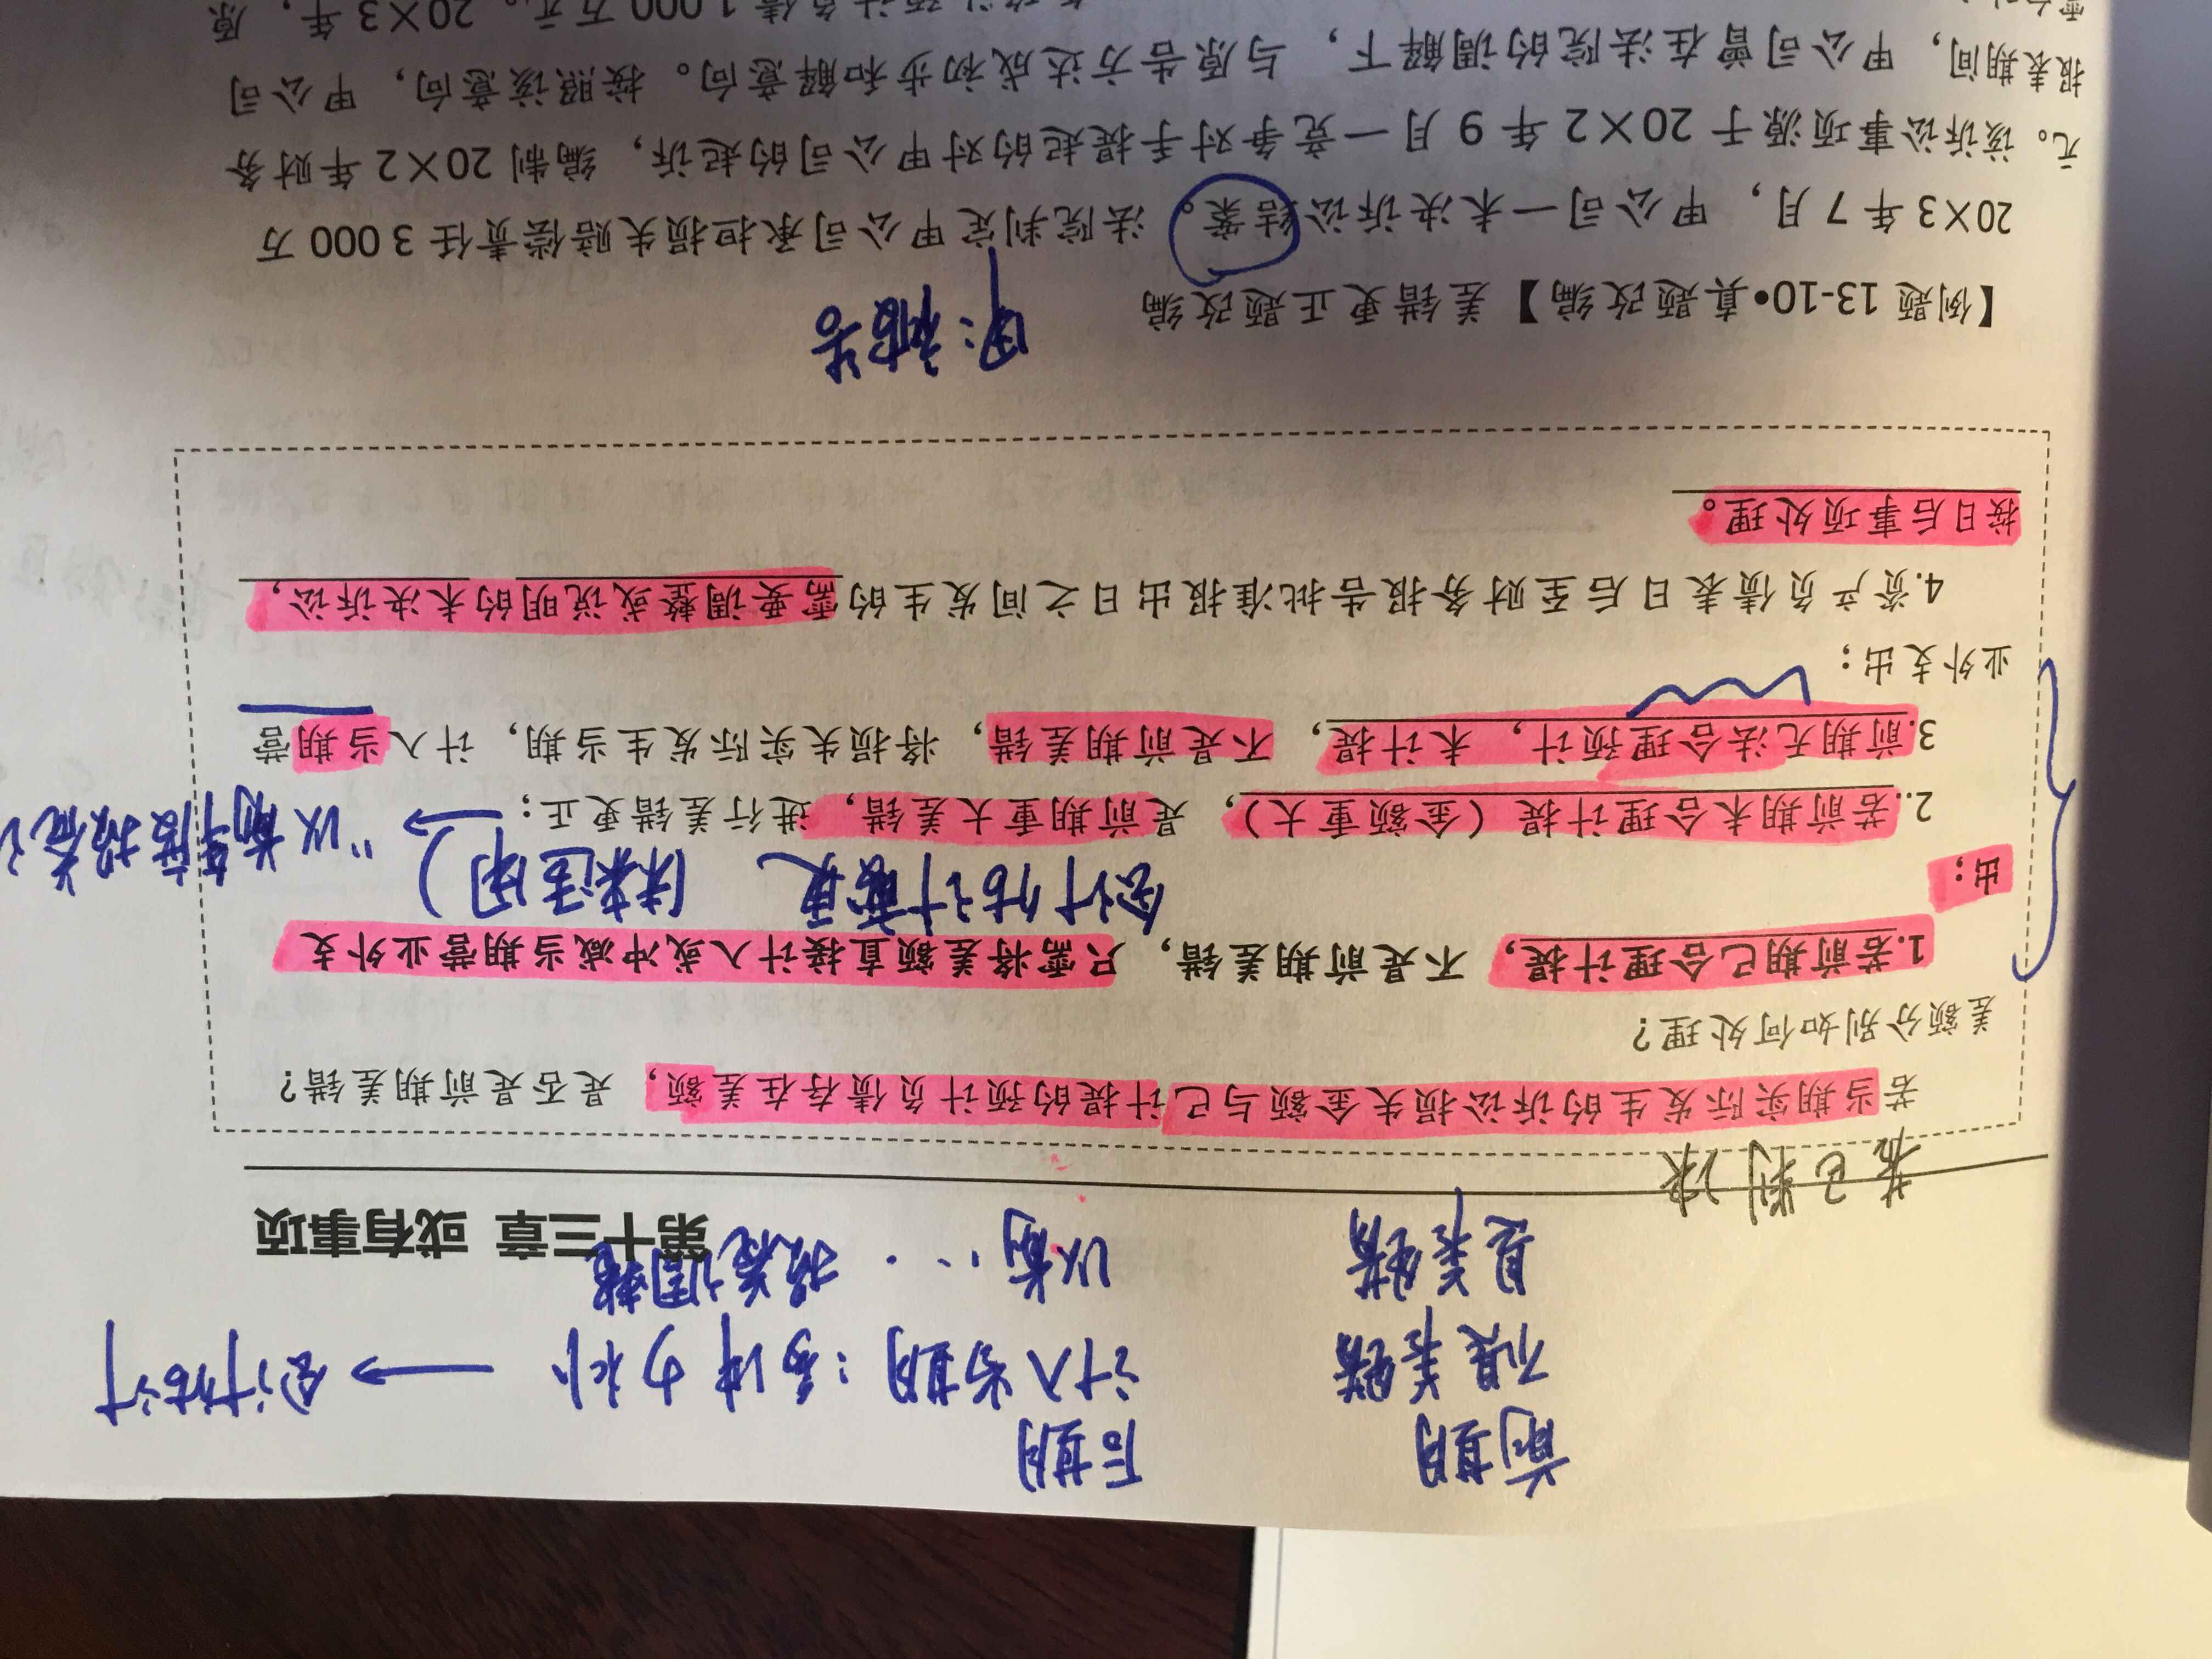 前期 后期
不是差错 计入当期：营业外 → 会计估计
是差错 以前…报表调整
第十三章 或有事项
若已判决
若当期实际发生的诉讼损失金额与已计提的预计负债存在差额，是否是前期差错？
差额分别如何处理？
1.若前期已合理计提，不是前期差错，只需将差额直接计入或冲减当期营业外支
出；
会计估计变更（未来适用）
2.若前期未合理计提（金额重大），是前期重大差错，进行差错更正； → “以前年度损益
3.前期无法合理预计，未计提，不是前期差错，将损失实际发生当期，计入当期营
业外支出；
4.资产负债表日后至财务报告批准报出日之间发生的需要调整或说明的未决诉讼，
按日后事项处理。
甲：被告
【例题 13-10•真题改编】差错更正题改编
20×3 年 7 月，甲公司一未决诉讼结案。法院判定甲公司承担损失赔偿责任 3 000 万
元。该诉讼事项源于 20×2 年 9 月一竞争对手提起的对甲公司的起诉，编制 20×2 年财务
报表期间，甲公司曾在法院的调解下，与原告方达成初步和解意向。按照该意向，甲公司
预计负债 1 000 万元。20×3 年，原